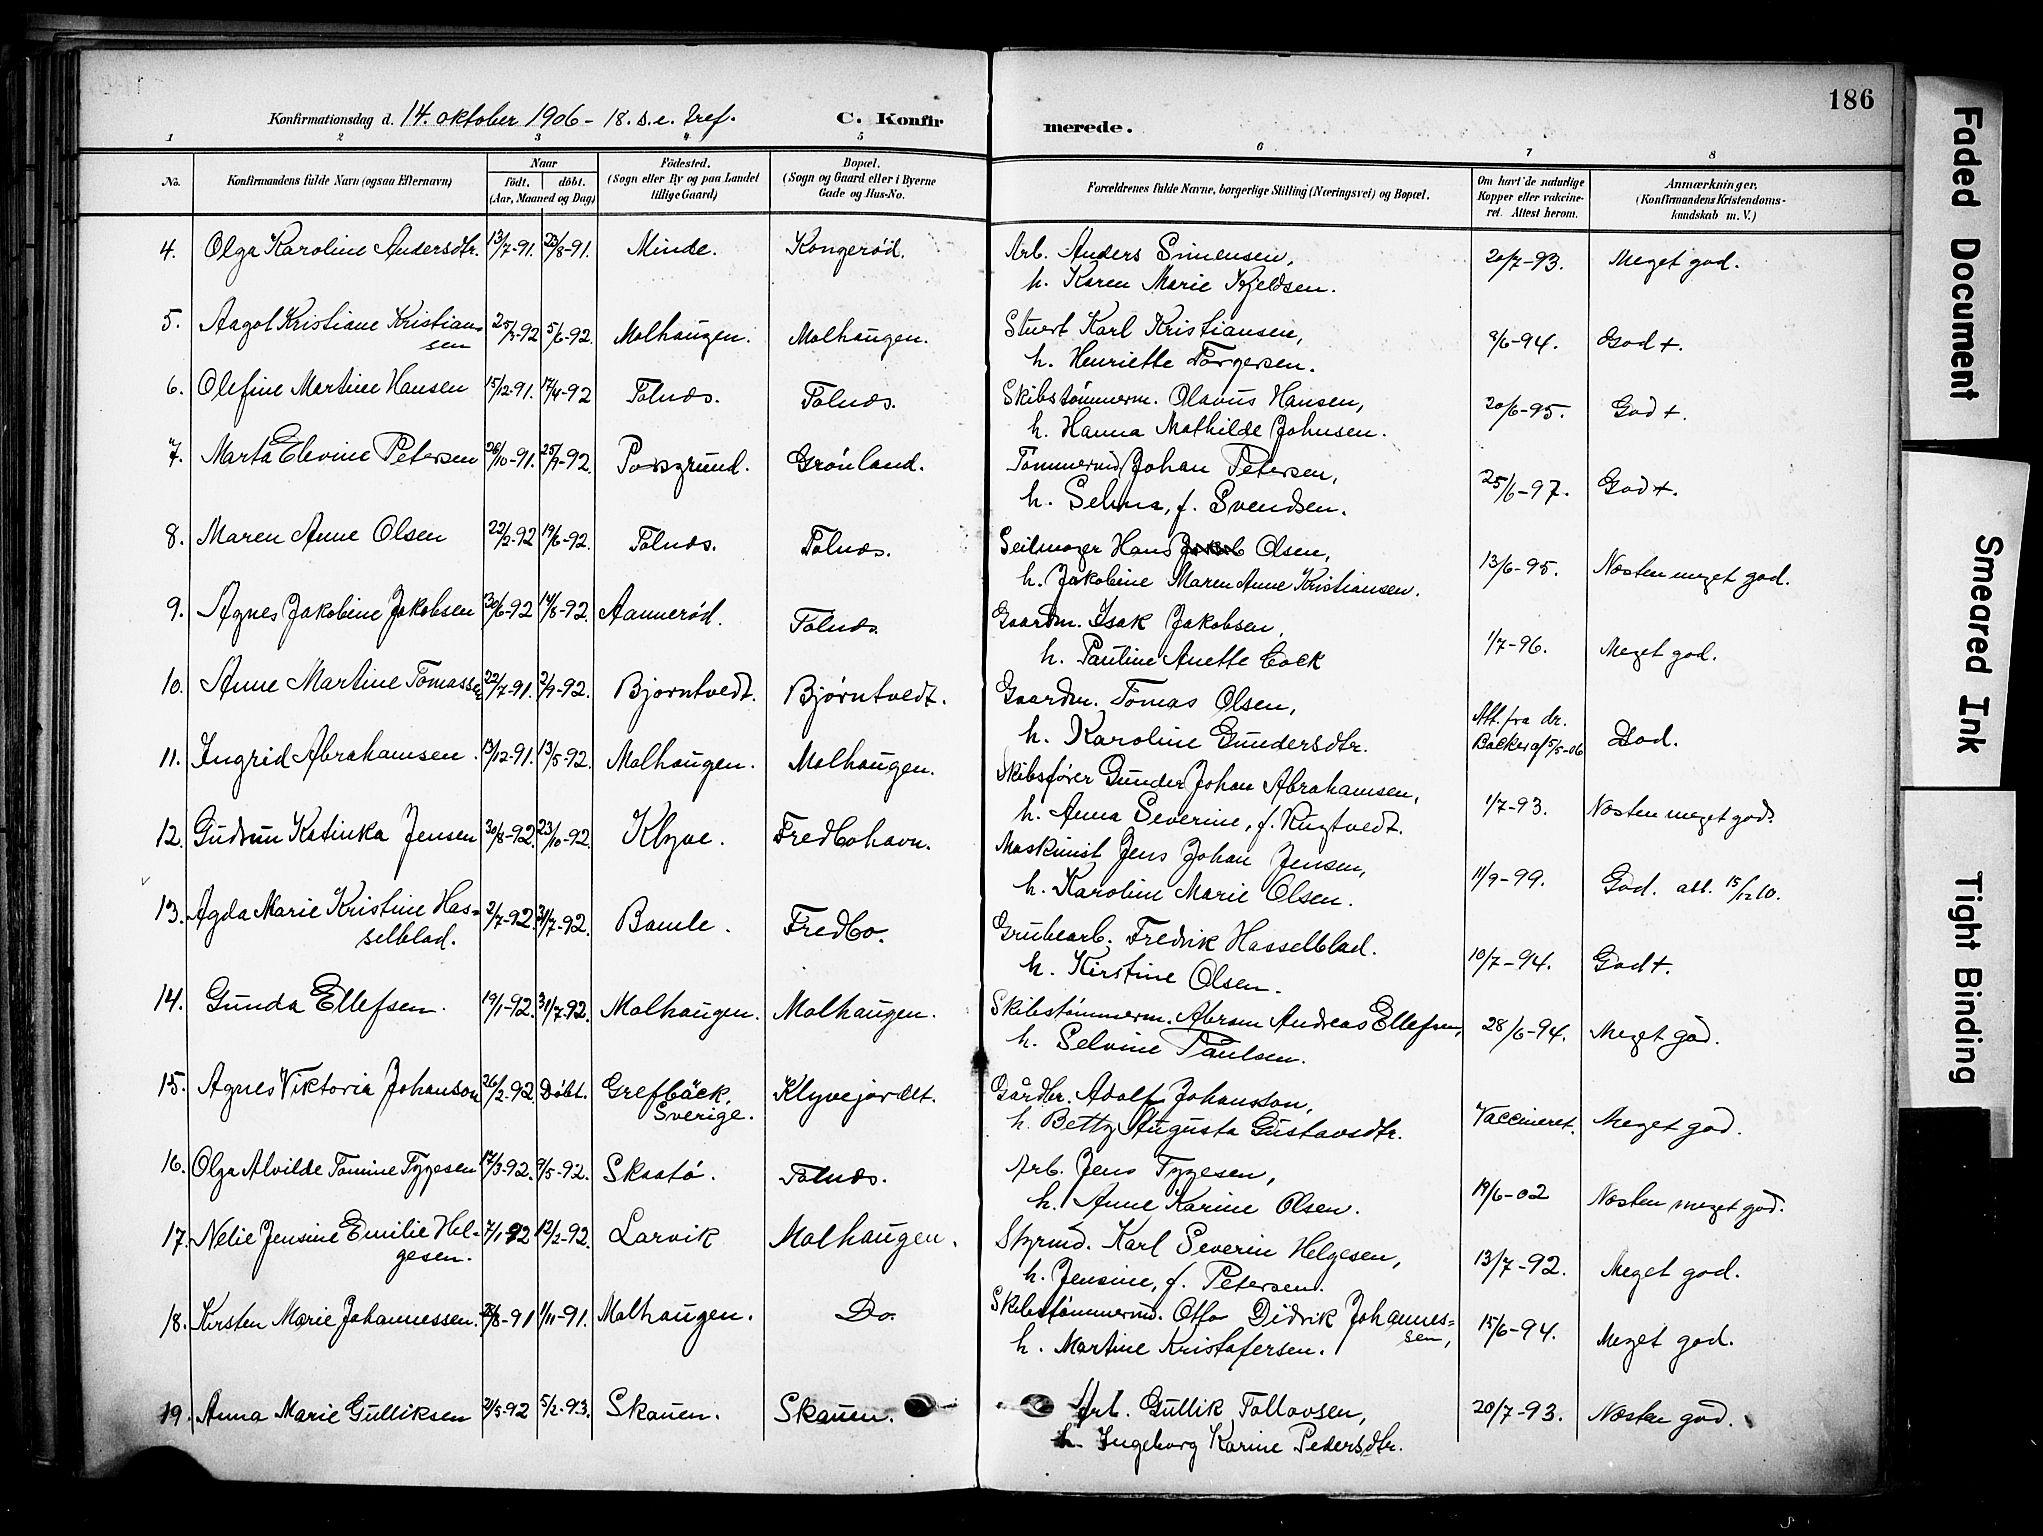 186
Konfirmationsdag d. 14. oktober 1906 - 18. s. e. Tref.
C. Konfirmerede.
1 2 3 4 5 6 7 8
No.
Konfirmandens fulde Navn (ogsaa Efternavn)
Naar
födt. döbt.
(Aar, Maaned og Dag)
Födested.
(Sogn eller By og paa Landet
tillige Gaard)
Bopæl.
(Sogn og Gaard eller i Byerne
Gade og Hus-No.
Forældrenes fulde Navne, borgerlige Stilling (Næringsvei) og Bopæl.
Om havt de naturlige
Kopper eller vakcine-
ret. Attest herom.
Anmærkninger.
(Konfirmandens Kristendoms-
kundskab m. V.)
4. Olga Karoline Andersdtr. 13/7-91. 23/8-91. Minde. Kongerød. Arb. Anders Simensen, 20/7-93. Meget god.
h. Karen Marie Kjeldsen.
5. Aagot Kristiane Kristian- 25/3-92 5/6-92. Molhaugen. Molhaugen. Stuert Karl Kristiansen, 8/6-94. God +.
sen h. Henriette Torgersen.
6. Olefine Martine Hansen 15/12-91. 17/4-92 Tolnæs. Tolnæs. Skibstømmerm. Olavus Hansen, 20/6-95. God +.
h. Hanna Mathilde Johnsen.
7. Marta Elevine Petersen 26/10-91. 25/9-92. Porsgrund. Grønland. Tømmermd. Johan Petersen, 25/6-97. God +.
h. Selma, f. Svendsen.
8. Maren Anne Olsen 22/2-92 19/6-92. Tolnæs. Tolnæs. Seilmager Hans Jakob Olsen, 13/6-95. Næsten meget god.
h. Jakobine Maren Anne Kristiansen.
9. Agnes Jakobine Jakobsen 30/6-92 14/8-92. Aannerød. Tolnæs. Gaardm. Isak Jakobsen, 1/7-96. Meget god.
h. Pauline Anette Cock
10. Anne Martine Tomassen 22/7-91. 2/9-92. Bjørntvedt. Bjørntvedt. Gaardm. Tomas Olsen, Att. fra dr. Backer af 5/5-06 God.
h. Karoline Gundersdtr.
11. Ingrid Abrahamsen. 13/12-91. 13/5-92. Molhaugen. Molhaugen. Skibsfører Gunder Johan Abrahamsen, 1/7-93. Næsten meget god.
h. Anna Severine, f. Rugtvedt.
12. Gudrun Katinka Jensen 30/8-92. 23/10-92. Klyve. Fredbohavn. Maskinist Jens Johan Jensen, 11/9-99. God. att. 15/12 10.
h. Karoline Marie Olsen.
13. Agda Marie Kristine Has- 2/7-92. 31/7-92. Bamle. Fredbo. Grubearb. Fredrik Hasselblad. 10/7-94. God +.
selblad. h. Kirstine Olsen.
14. Gunda Ellefsen. 19/1-92. 31/7-92. Molhaugen. Molhaugen. Skibstømmerm. Abram Andreas Ellefsen, 28/6-94. Meget god.
h. Selvine Paulsen.
15. Agnes Viktoria Johanson 26/2-92. Døbt. Grefbäck, Klyvejordet. Gårdbr. Adolf Johansson, Vaccineret. Meget god.
Sverige. h. Betty Augusta Gustavsdtr.
16. Olga Alvilde Tomine Tygesen 17/3-92. 9/5-92. Skaatø. Tolnæs. Arb. Jens Tygesen, 19/6-02 Næsten meget god.
h. Anne Karine Olsen.
17. Nelie Jensine Emilie Hel- 7/1-92 12/2-92. Larvik Molhaugen. Styrmd. Karl Severin Helgesen, 13/7-92. Meget god.
gesen. h. Jensine, f. Petersen.
18. Kirsten Marie Johannessen. /8-91 1/11-91. Molhaugen. Do. Skibstømmermd. Otto Didrik Johannes- 15/6-94. Meget god.
sen, h. Martine Kristofersen.
19. Anna Marie Gulliksen 2/5-92 5/2-93. Skauen. Skauen. Arb. Gullik Tollovsen, 20/7-93. Næsten god.
h. Ingeborg Karine Pedersdtr.
Faded Document
Smeared Ink
Tight Binding